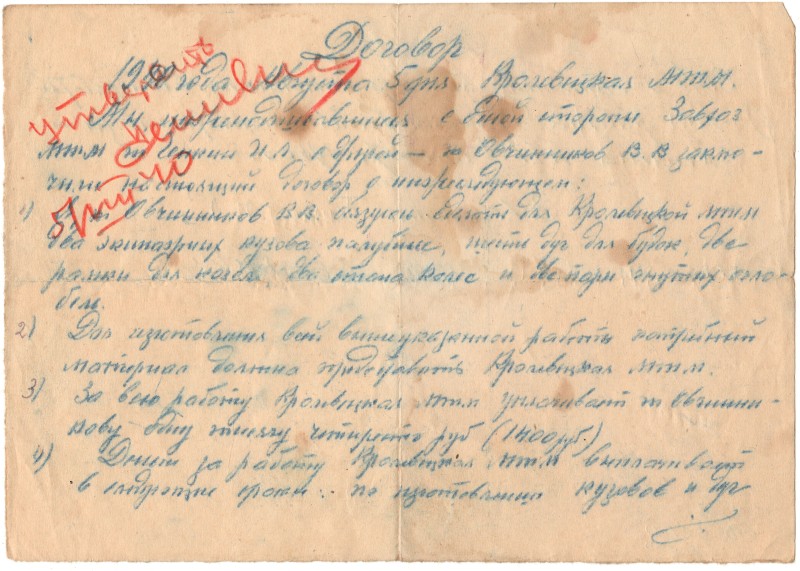 Договор
1940 года Августа 5 дня Кролевецкая МТМ.
Мы нижеподписавшиеся с одной стороны Завхоз
МТМ т. И.Л. с другой — т. Овчинников В.В. заклю-
чили настоящий договор о нижеследующем:
1) Я т. Овчинников В.В. сделать для Кролевецкой МТМ
два экипажных кузова палубные, шесть дуг для будок, две
рамки для козел, два стана колес и две пары гнутых огло-
бель.
2) Для изготовления всей вышеуказанной работы материал должна предоставить Кролевецкая МТМ.
3) За всю работу Кролевецкая МТМ уплачивает т. Овчинни-
кову одну тысячу четыреста руб (1400 руб.)
4) Деньги за работу Кролевецкая МТМ выплачивает
в следующие сроки: по изготовлению кузовов и дуг
утвердить